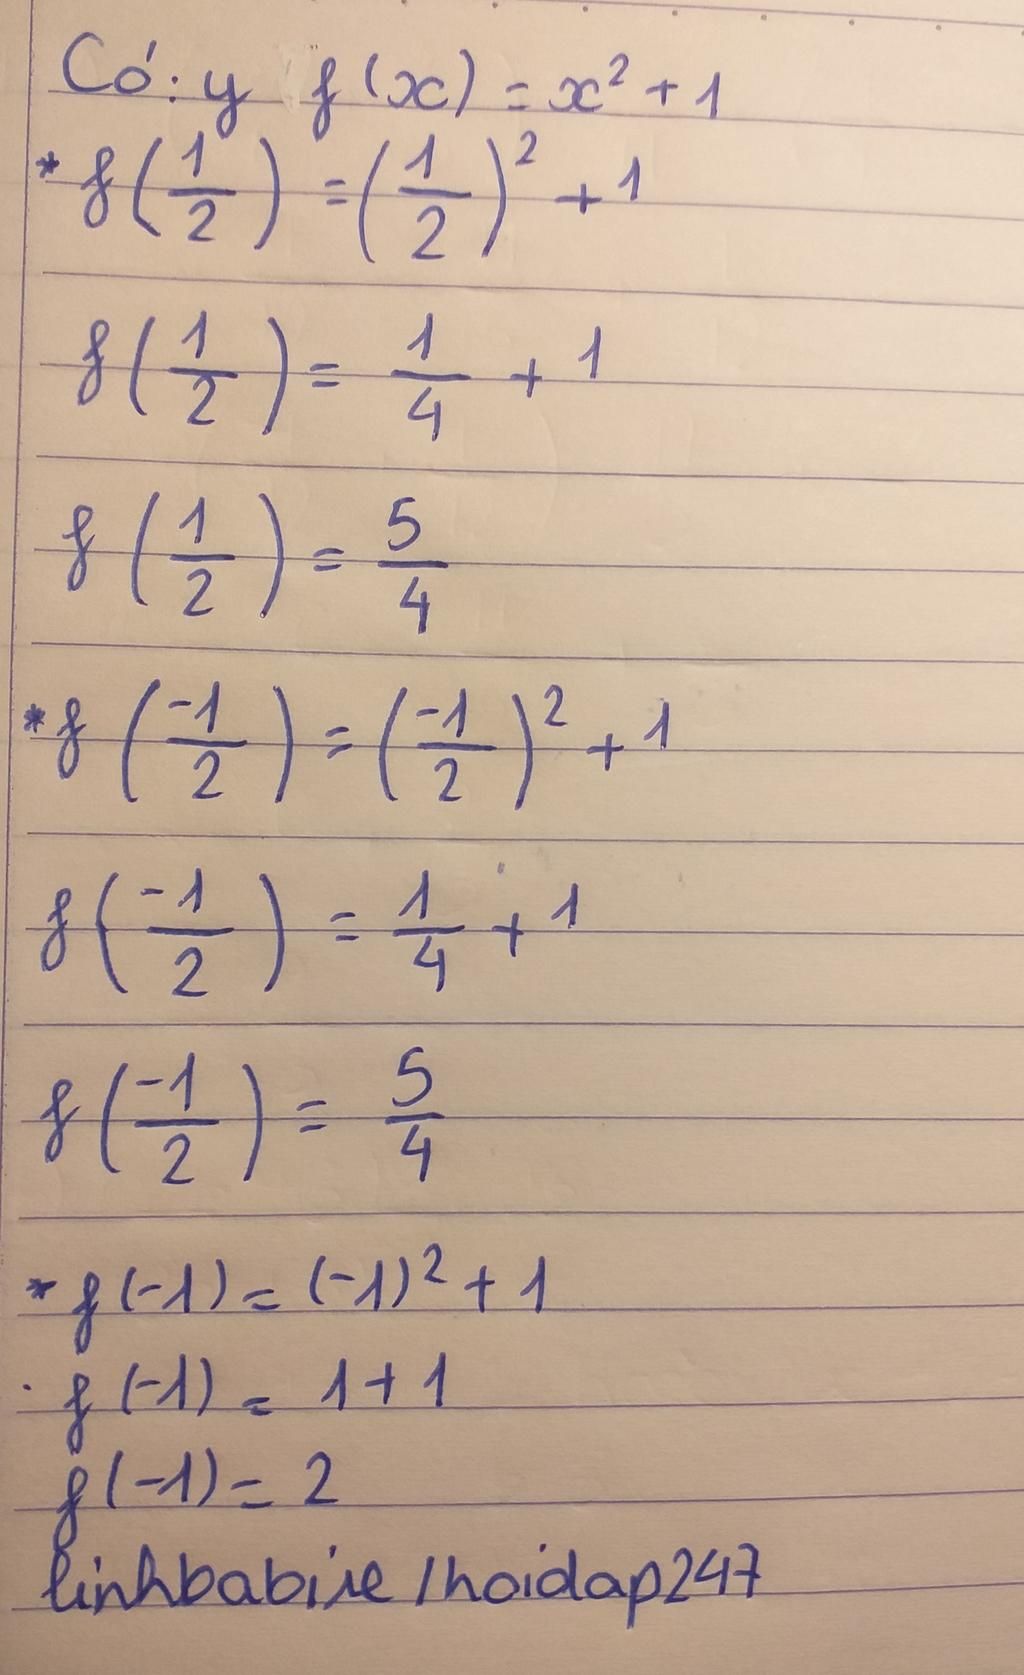 Có: y f(x) = x² + 1
* f(1/2) = (1/2)² + 1
f(1/2) = 1/4 + 1
f(1/2) = 5/4
* f(-1/2) = (-1/2)² + 1
f(-1/2) = 1/4 + 1
f(-1/2) = 5/4
* f(-1) = (-1)² + 1
. f(-1) = 1 + 1
f(-1) = 2
linhbabire/hoidap247